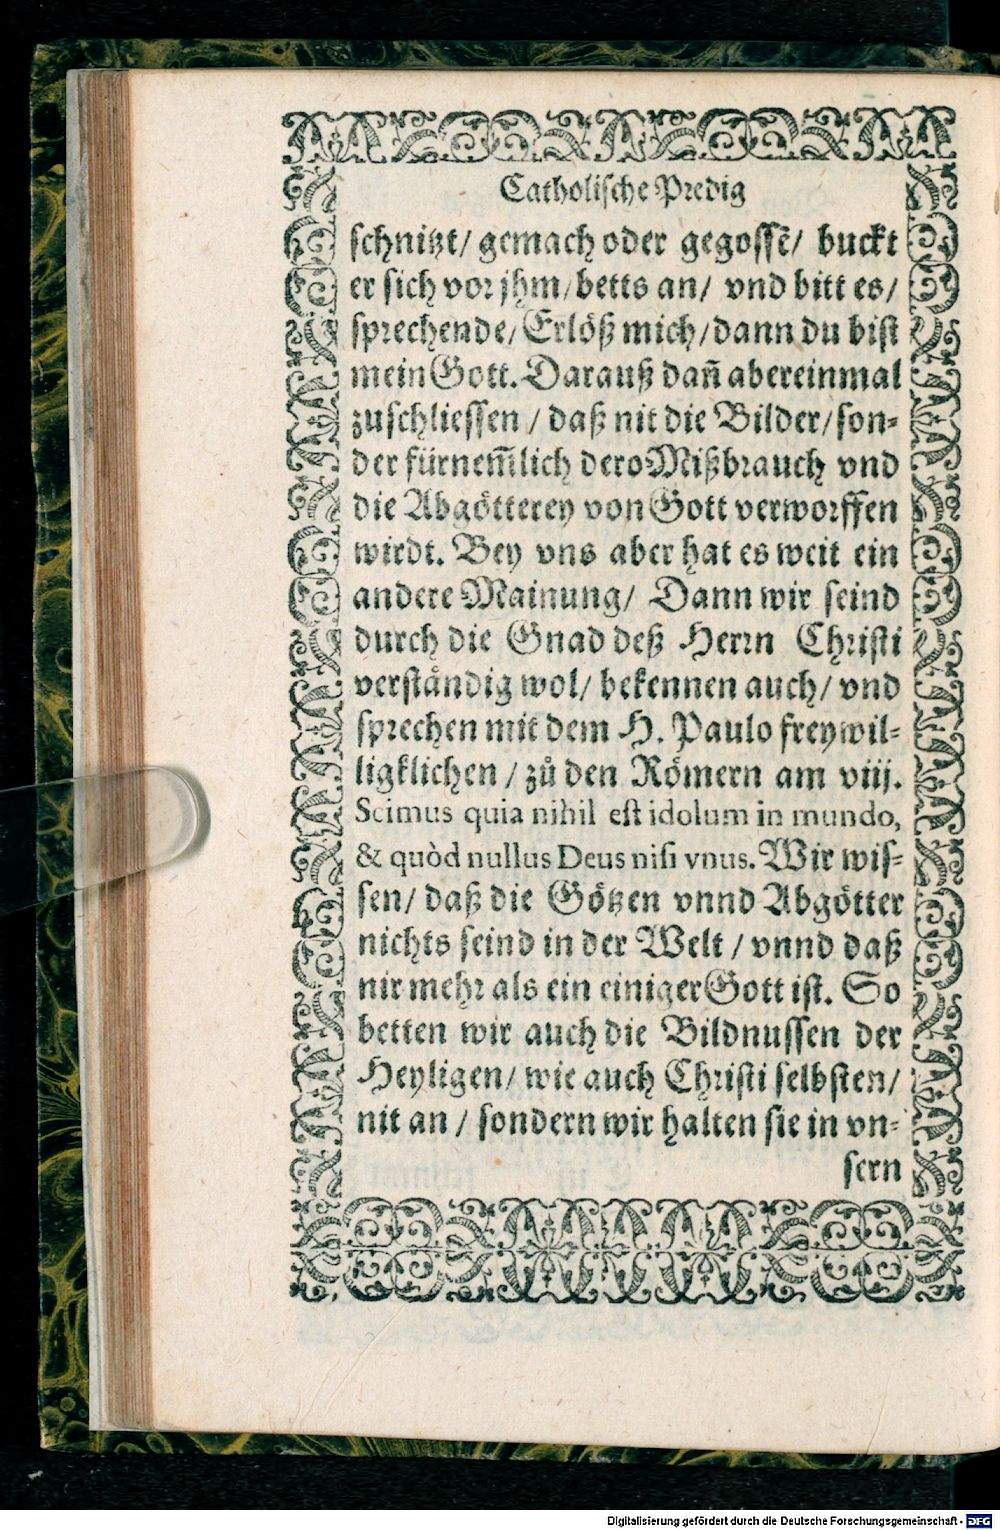 Catholische Predig
schnitzt/ gemach oder gegossē/ buckt
er sich vor jhm/ betts an/ vnd bitt es/
sprechende/ Erlöß mich/ dann du bist
mein Gott. Darauß dañ abereinmal
zuschliessen / daß nit die Bilder/ son-
der fürnem̃lich dero Mißbrauch vnd
die Abgötterey von Gott verworffen
wirdt. Bey vns aber hat es weit ein
andere Mainung/ Dann wir seind
durch die Gnad deß Herrn Christi
verständig wol/ bekennen auch/ vnd
sprechen mit dem H. Paulo freywil-
ligklichen / zů den Römern am viij.
Scimus quia nihil est idolum in mundo,
& quòd nullus Deus nisi vnus. Wir wis-
sen/ daß die Götzen vnnd Abgötter
nichts seind in der Welt / vnnd daß
nir mehr als ein einiger Gott ist. So
betten wir auch die Bildnussen der
Heyligen/ wie auch Christi selbsten/
nit an / sondern wir halten sie in vn-
sern
Digitalisierung gefördert durch die Deutsche Forschungsgemeinschaft - DFG